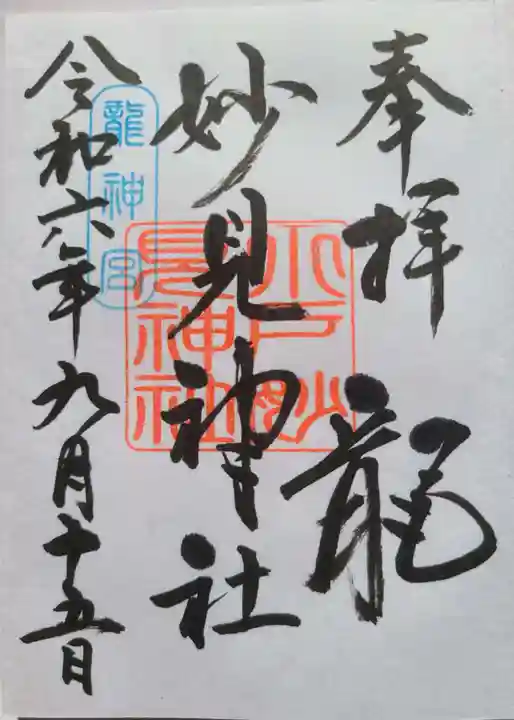 奉拝
龍
妙見神社
令和六年九月十五日
龍神宮
平戸妙
見神社